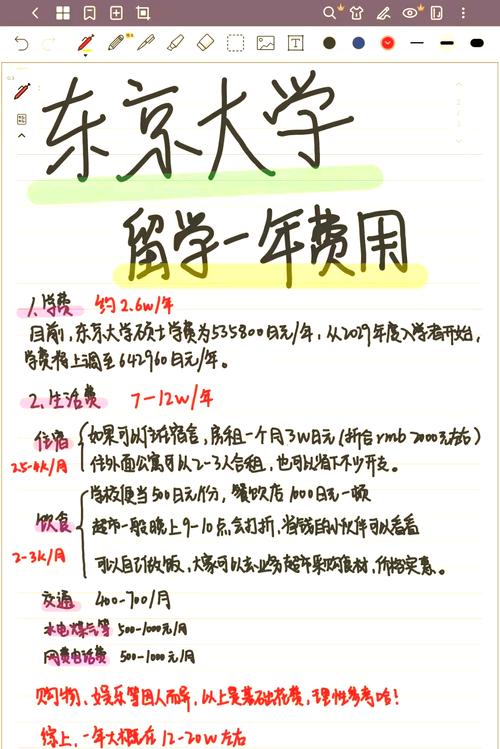 东京大学
留学一年费用
1.学费 约2.6w/年
目前,东京大学硕士学费为535800日元/年,从2029年度入学者开始,
学费将上调至642960日元/年。
2.生活费 7-12w/年
住宿 如果可以住在宿舍,房租一个月3w日元(折合rmb 2000元左右)
2.5-4k/月 住外面公寓可以2-3人合租,也可以省下不少开支。
学校便当500日元/份,餐饮店1000日元一顿
饮食 超市一般晚上9-10点会打折,省钱的小伙伴可以看看
2-3k/月 可以自己做饭,大家可以去业务超市采购食材,价格实惠。
交通 400-700/月
水电煤气等 500-1000元/月
网费电话费 500-1000元/月
购物、娱乐等因人而异,以上是基础花费,理性参考哈!
综上,一年大概在12-20w左右